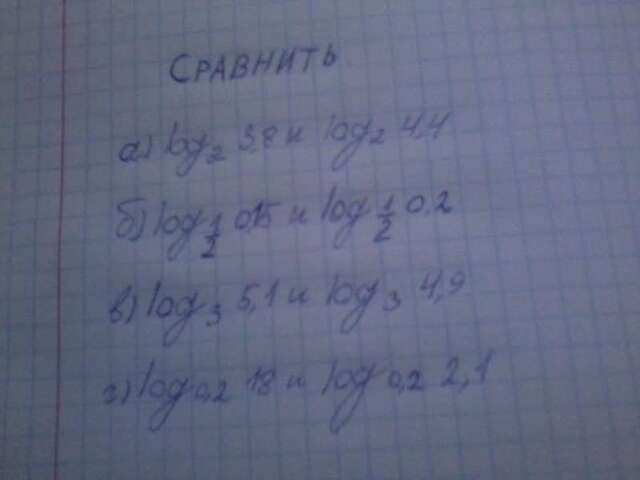 СРАВНИТЬ
а) log₂ 3,8 и log₂ 4,4
б) log 1/2 0,15 и log 1/2 0,2
в) log₃ 5,1 и log₃ 4,9
г) log 0,2 18 и log 0,2 2,1